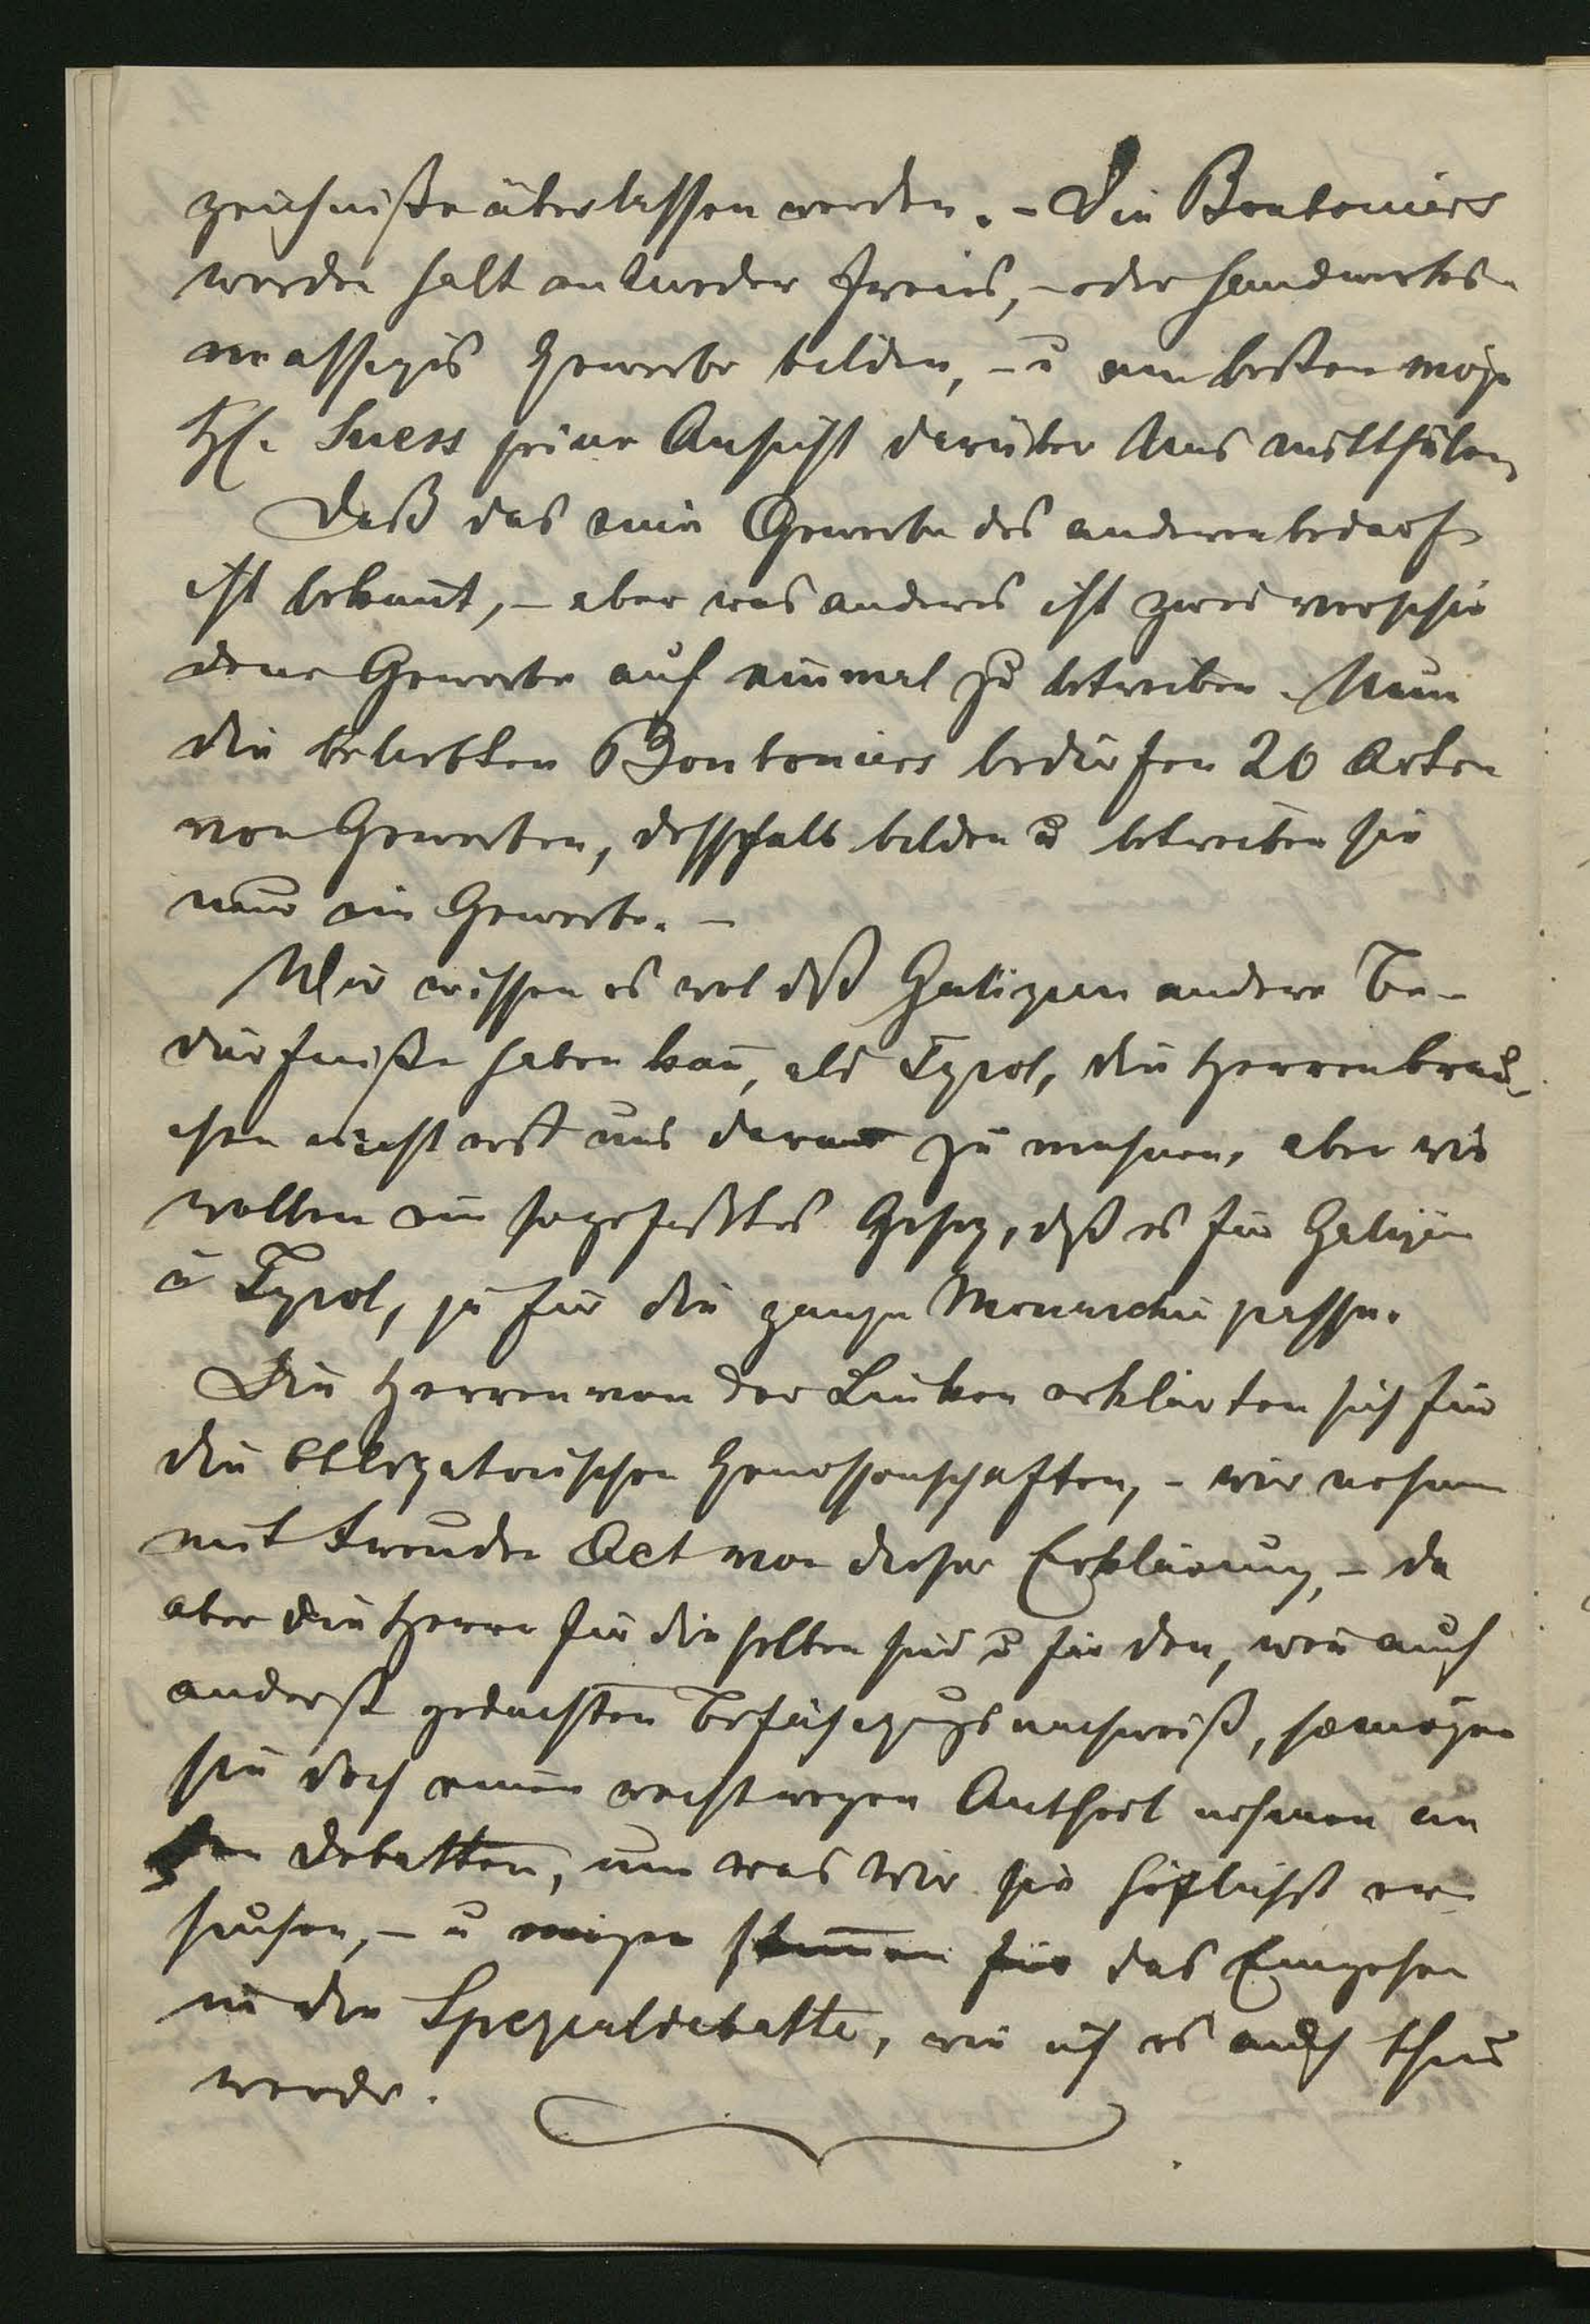 zeichniße überlassen werden. – Die Bonboniers
werden halt entweder freies, – oder handwerks-
maessiges Gewerbe bilden, – u am besten möge
H. Suess seine Ansicht darüber uns mittheilen
Daß das eine Gewerbe des anderen bedarf
ist bekannt, – aber was anderes ist zwei verschie
dene Gewerbe auf einmal zu betreiben. Nun
die beliebten Bonboniers bedürfen 20 Arten
von Gewerben, desshalb bilden u betreiben sie
nur ein Gewerbe. –
Wir wissen es wol dß Galizien andere Be-
dürfniße haben kan̄, als Tyrol, die Herren brau-
chen nicht erst uns daran zu mahnen, aber wir
wollen ein so gefasstes Gesez, dß es für Galizien
u Tyrol, ja für die ganze Monarchie passe.
Die Herren von der Linken erklärten sich für
die obligatorischen Genossenschaften, – wir nehmen
mit Freuden Act von dieser Erklärung, – da
aber die Herren für dieselben sind u für den, wen̄ auch
anderst gedachten Befähigungsnachweiß, so mögen
sie doch einen recht regen Antheil nehmen an
den Debatten, um was wir sie höflichst er-
suchen, – u mögen stim̄en für das Eingehen
in die Spezialdebatte, wie ich es auch thun
werde.